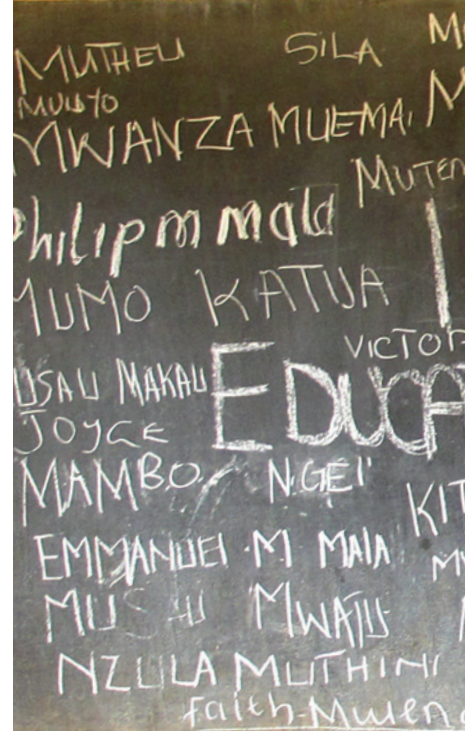 MUTHEU SILA
MUUYO
MWANZA MUEMA
MUTEM
Philip m mala
MUMO KATUA
VICTOR
USAU MAKAU
EDUCA
JOYCE
MAMBO NGEI
KIT
EMMANUEL .M MALA
MUSAU
NZULA MUTHINI
faith-Mwen